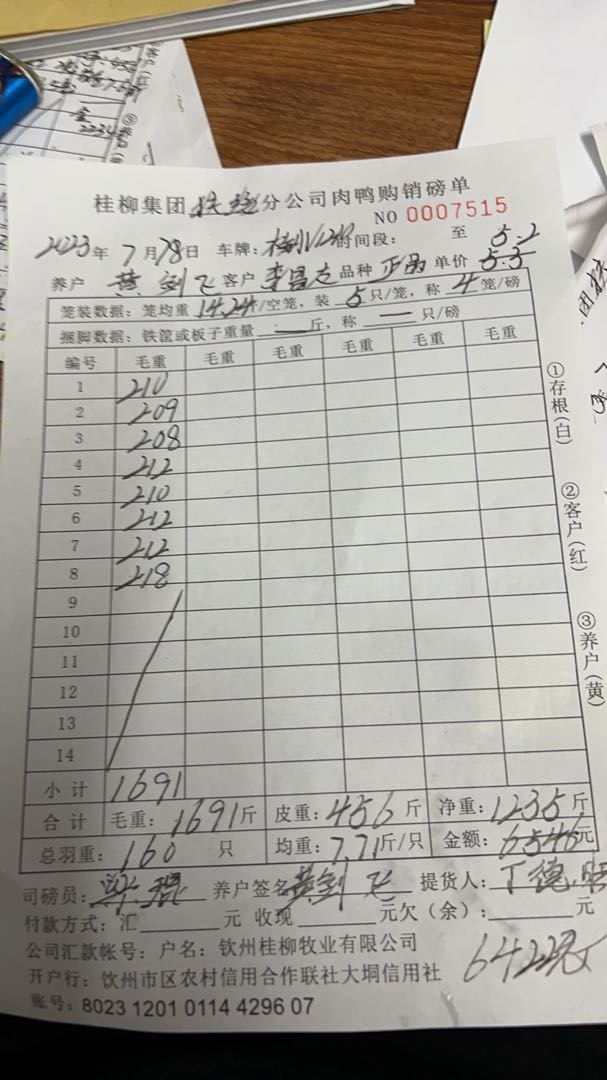 桂柳集团 分公司肉鸭购销磅单
NO 0007515
2023年 7月28日 车牌: 时间段: 至 5.2
养户 黄剑飞 客户 李昌志 品种 正品 单价 5.3
笼装数据: 笼均重 14.24/空笼, 装 5 只/笼, 称 4 笼/磅
捆脚数据: 铁筐或板子重量 — 斤, 称 — 只/磅
编号 毛重 毛重 毛重 毛重 毛重 毛重
1 210
2 209
3 208
4 212
5 210
6 212
7 212
8 218
9
10
11
12
13
14
小计 1691
合计 毛重: 1691斤 皮重: 456斤 净重: 1235斤
总羽重: 160 只 均重: 7.71斤/只 金额: 6546元
司磅员: 养户签名 黄剑飞 提货人: 丁德
付款方式: 汇 元 收现 元欠(余): 元
公司汇款帐号: 户名: 钦州桂柳牧业有限公司
6422元
开户行: 钦州市区农村信用合作联社大垌信用社
账号: 8023 1201 0114 4296 07
①存根(白)
②客户(红)
③养户(黄)